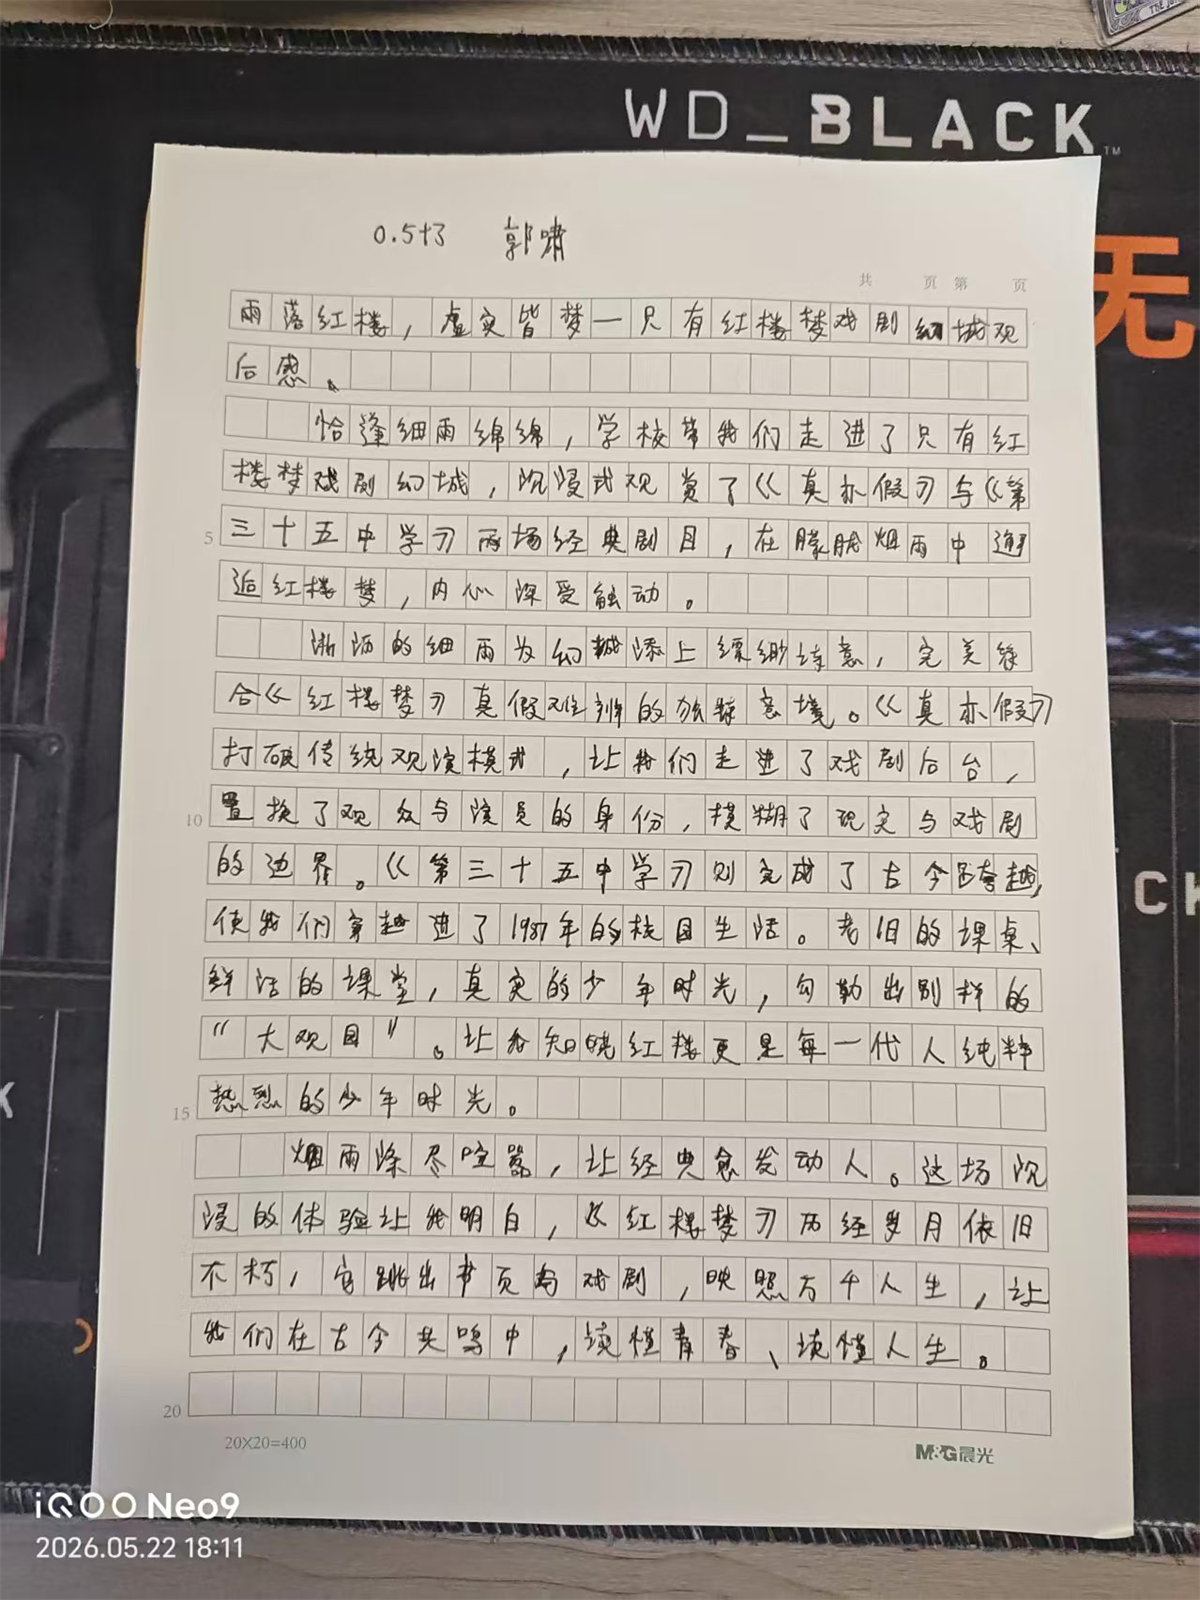 WD_BLACK™
无
C K
0.5+3 郭啸
共 页 第 页
雨落红楼，虚实皆梦一只有红楼梦戏剧幻城观
后感。
恰逢细雨绵绵，学校带我们走进了只有红
楼梦戏剧幻城，沉浸式观赏了《真亦假》与《第
5 三十五中学》两场经典剧目，在朦胧烟雨中邂
逅红楼梦，内心深受触动。
淅沥的细雨为幻城添上缥缈诗意，完美符
合《红楼梦》真假难辨的独特意境。《真亦假》
打破传统观演模式，让我们走进了戏剧后台，
10 置换了观众与演员的身份，模糊了现实与戏剧
的边界。《第三十五中学》则完成了古今跨越，
使我们穿越进了1987年的校园生活。老旧的课桌、
鲜活的课堂，真实的少年时光，勾勒出别样的
“大观园”。让我知晓红楼更是每一代人纯粹
15 热烈的少年时光。
烟雨涤尽喧嚣，让经典愈发动人。这场沉
浸的体验让我明白，《红楼梦》历经岁月依旧
不朽，它跳出书页与戏剧，映照万千人生，让
我们在古今共鸣中，读懂青春、读懂人生。
20
20X20=400
M&G晨光
iQOO Neo9
2026.05.22 18:11